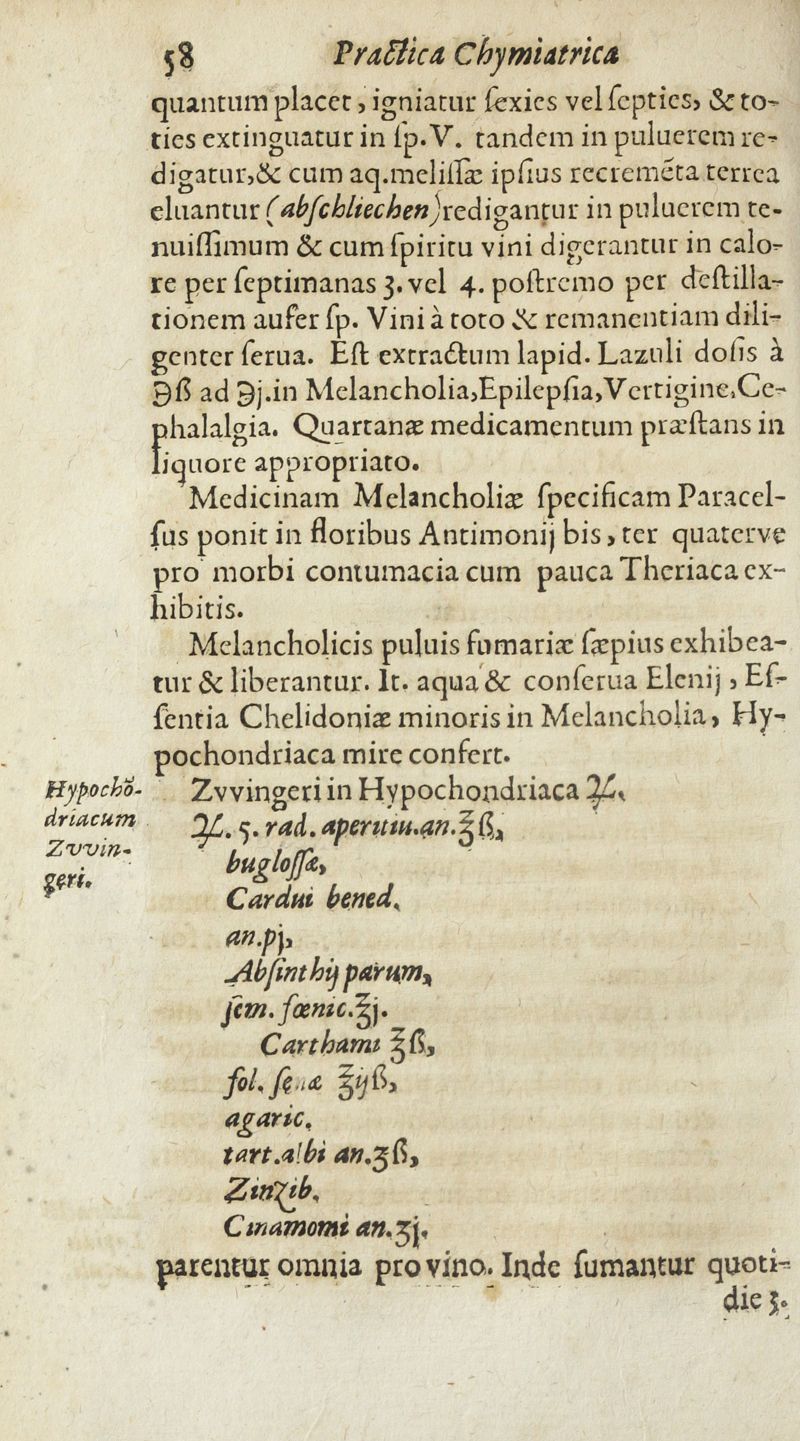 58 Practica Chymiatrica
quantum placet, igniatur ſexies vel ſepties, & to-
ties extinguatur in ſp. V. tandem in puluerem re-
digatur, & cum aq. meliſſæ ipſius recremēta terrea
eluantur (abſchliechen) redigantur in puluerem te-
nuiſſimum & cum ſpiritu vini digerantur in calo-
re per ſeptimanas 3. vel 4. poſtremo per deſtilla-
tionem aufer ſp. Vini à toto & remanentiam dili-
genter ſerua. Eſt extractum lapid. Lazuli doſis à
℈ß ad ℈j. in Melancholia, Epilepſia, Vertigine, Ce-
phalalgia. Quartanæ medicamentum præſtans in
liquore appropriato.
Medicinam Melancholiæ ſpecificam Paracel-
ſus ponit in floribus Antimonij bis, ter quaterve
pro morbi contumacia cum pauca Theriaca ex-
hibitis.
Melancholicis puluis fumariæ ſæpius exhibea-
tur & liberantur. It. aqua & conſerua Elenij, Eſ-
ſentia Chelidoniæ minoris in Melancholia, Hy-
pochondriaca mire confert.
Hypochō-
driacum
Zvvin-
geri.
Zvvingeri in Hypochondriaca ♃.
♃. 5. rad. aperitiu. an. ℥ß,
bugloſſæ,
Cardui bened.
an. pj,
Abſinthij parum,
ſem. fœnic. ℥j.
Carthami ℥ß,
fol. ſenæ ℥ijß,
agaric.
tart. albi an. ʒß,
Zinzib.
Cinamomi an. ʒj.
parentur omnia pro vino. Inde ſumantur quoti-
die 3.